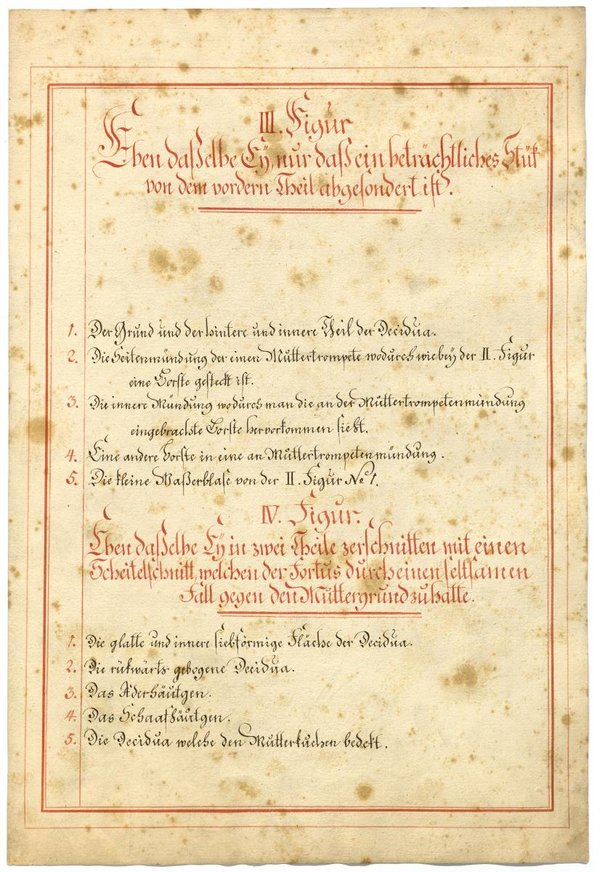 III. Figur
Eben daßelbe Eÿ, nur daß ein beträchtliches Stük
von dem vordern Theil abgesondert ist.
1. Der Grund und der hintere und innere Theil der Decidua.
2. Die Seitenmündung der einen Muttertrompete wodurch wie bey der II. Figur
eine Borste gesteckt ist.
3. Die innere Mündung wodurch man die an der Muttertrompetenmündung
eingebrachte Borste hervorkommen sieht.
4. Eine andere Borste in eine an Muttertrompetenmündung.
5. Die kleine Waßerblase von der II. Figur No 1.
IV. Figur.
Eben daßelbe Eÿ in zwei Theile zerschnitten mit einen
Scheitelschnitt, welchen der Foetus durch einen seltsamen
Fall gegen den Muttergrund zu hatte.
1. Die glatte und innere siebförmige Fläche der Decidua.
2. Die rükwärts gebogene Decidua.
3. Das Aderhäutgen.
4. Das Schaafhäutgen.
5. Die Decidua welche den Mutterkuchen bedekt.